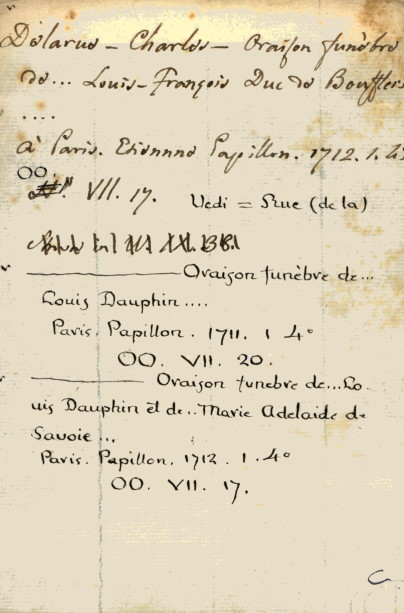 Delarue - Charles - Oraison funèbre
de... Louis-François Duc de Boufflers
....
à Paris. Etienne Papillon. 1712. 1. 4º
OO.
VII. 17. Vedi = Rue (de la)
——— Oraison funèbre de...
Louis Dauphin ....
Paris. Papillon. 1711. 1 4º
OO. VII. 20.
——— Oraison funebre de...Lo-
uis Dauphin et de.. Marie Adelaide de
Savoie ...
Paris. Papillon. 1712. 1. 4º
OO. VII. 17.